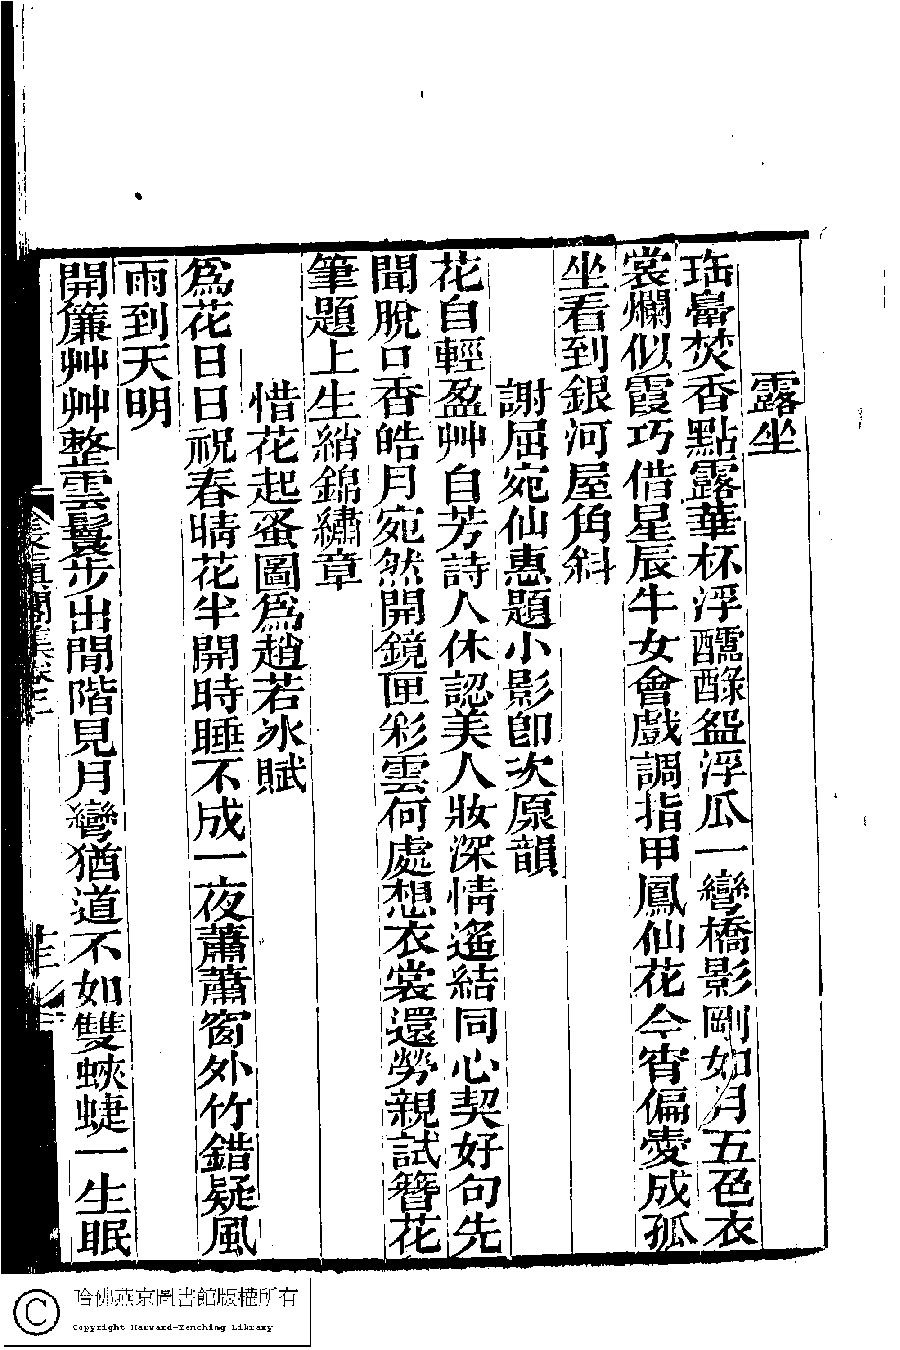 露坐
珤鼎焚香點露華杯浮醽醁盌浮瓜一彎橋影剛如月五色衣
裳爛似霞巧借星辰牛女會戲調指甲鳳仙花今宵偏愛成孤
坐看到銀河屋角斜
謝屈宛仙惠題小影卽次原韻
花自輕盈艸自芳詩人休認美人妝深情遙結同心契好句先
聞脫口香皓月宛然開鏡匣彩雲何處想衣裳還勞親試簪花
筆題上生綃錦繡章
惜花起蚤圖爲趙若冰賦
爲花日日祝春晴花半開時睡不成一夜蕭蕭窗外竹錯疑風
雨到天明
開簾艸艸整雲鬟步出閒階見月彎猶道不如雙蛺蜨一生眠
眞閣集卷三
哈佛燕京圖書館版權所有
Copyright Harvard-Yenching Library